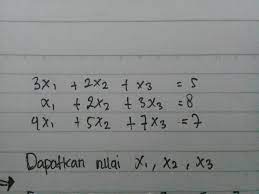 3x₁ + 2x₂ + x₃ = 5
x₁ + 2x₂ + 3x₃ = 8
4x₁ + 5x₂ + 7x₃ = 7
→ Dapatkan nilai x₁, x₂, x₃